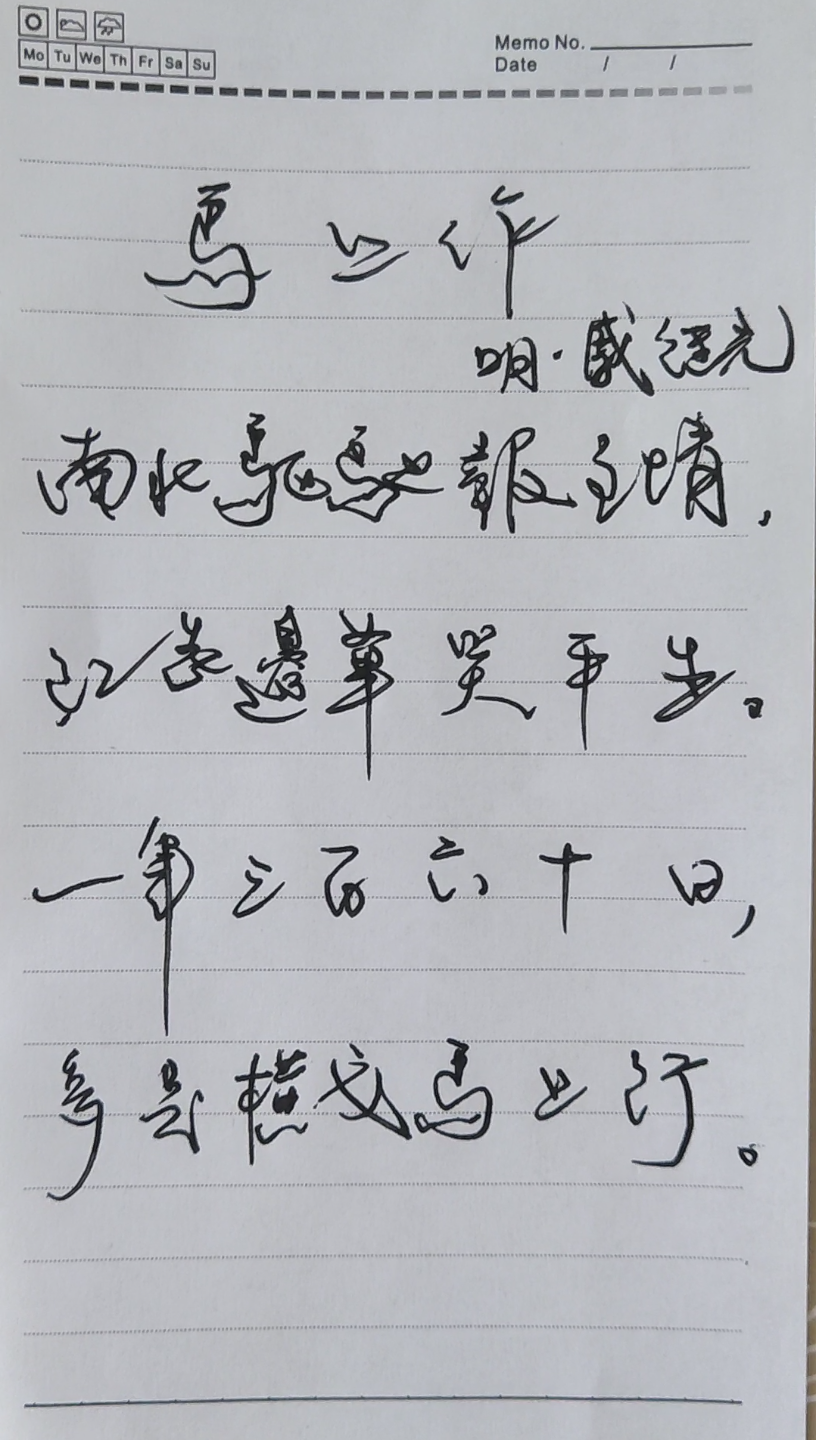 Mo Tu We Th Fr Sa Su
Memo No.
Date / /
馬上作
明·戚继光
南北驅馳報主情，
江花邊草笑平生。
一年三百六十日，
多是横戈馬上行。